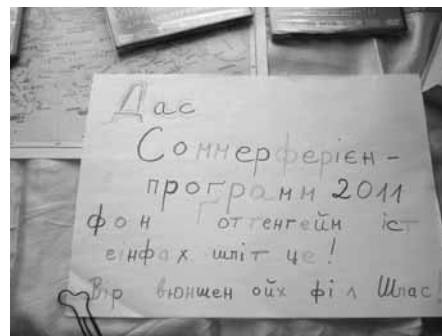 Дас
Соммерферієн-
программ 2011
фон Готтенгейм іст
еінфах шпіт це!
Вір вюншен ойх філ Шпас!